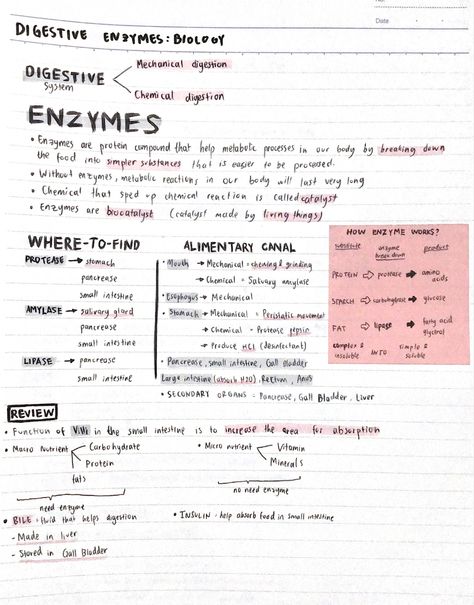 No:
Date
DIGESTIVE ENZYMES: BIOLOGY
DIGESTIVE
system
Mechanical digestion
Chemical digestion
ENZYMES
• Enzymes are protein compound that help metabolic processes in our body by breaking down
the food into simpler substances that is easier to be processed.
• Without enzymes, metabolic reactions in our body will last very long
• Chemical that sped up chemical reaction is called catalyst
• Enzymes are biocatalyst (catalyst made by living things)
WHERE-TO-FIND
PROTEASE → stomach
pancrease
small intestine
AMYLASE → salivary gland
pancrease
small intestine
LIPASE → pancrease
small intestine
ALIMENTARY CANAL
• Mouth → Mechanical = chewing & grinding
→ Chemical = Salivary amylase
• Esophogus → Mechanical
• Stomach → Mechanical = Peristatic movement
→ Chemical = Protease pepsin
→ Produce HCl (desinfectant)
• Pancrease, small intestine, Gall Bladder
Large intestine (absorb H2O), Rectum, Anus
• SECONDARY ORGANS = Pancrease, Gall Bladder, Liver
HOW ENZYME WORKS?
substrate enzyme product
break down
PROTEIN ⇒ protease ⇒ amino
acids
STARCH ⇒ carbohydrase ⇒ glucose
FAT ⇒ lipase ⇒ fatty acid
glycerol
complex & INTO simple &
insoluble soluble
REVIEW
• Function of Villi in the small intestine is to increase the area for absorption
• Macro Nutrient
Carbohydrate
Protein
fats
need enzyme
• Micro nutrient
Vitamin
Minerals
no need enzyme
• BILE = fluid that helps digestion
- Made in liver
- Stored in Gall Bladder
• INSULIN = help absorb food in small intestine